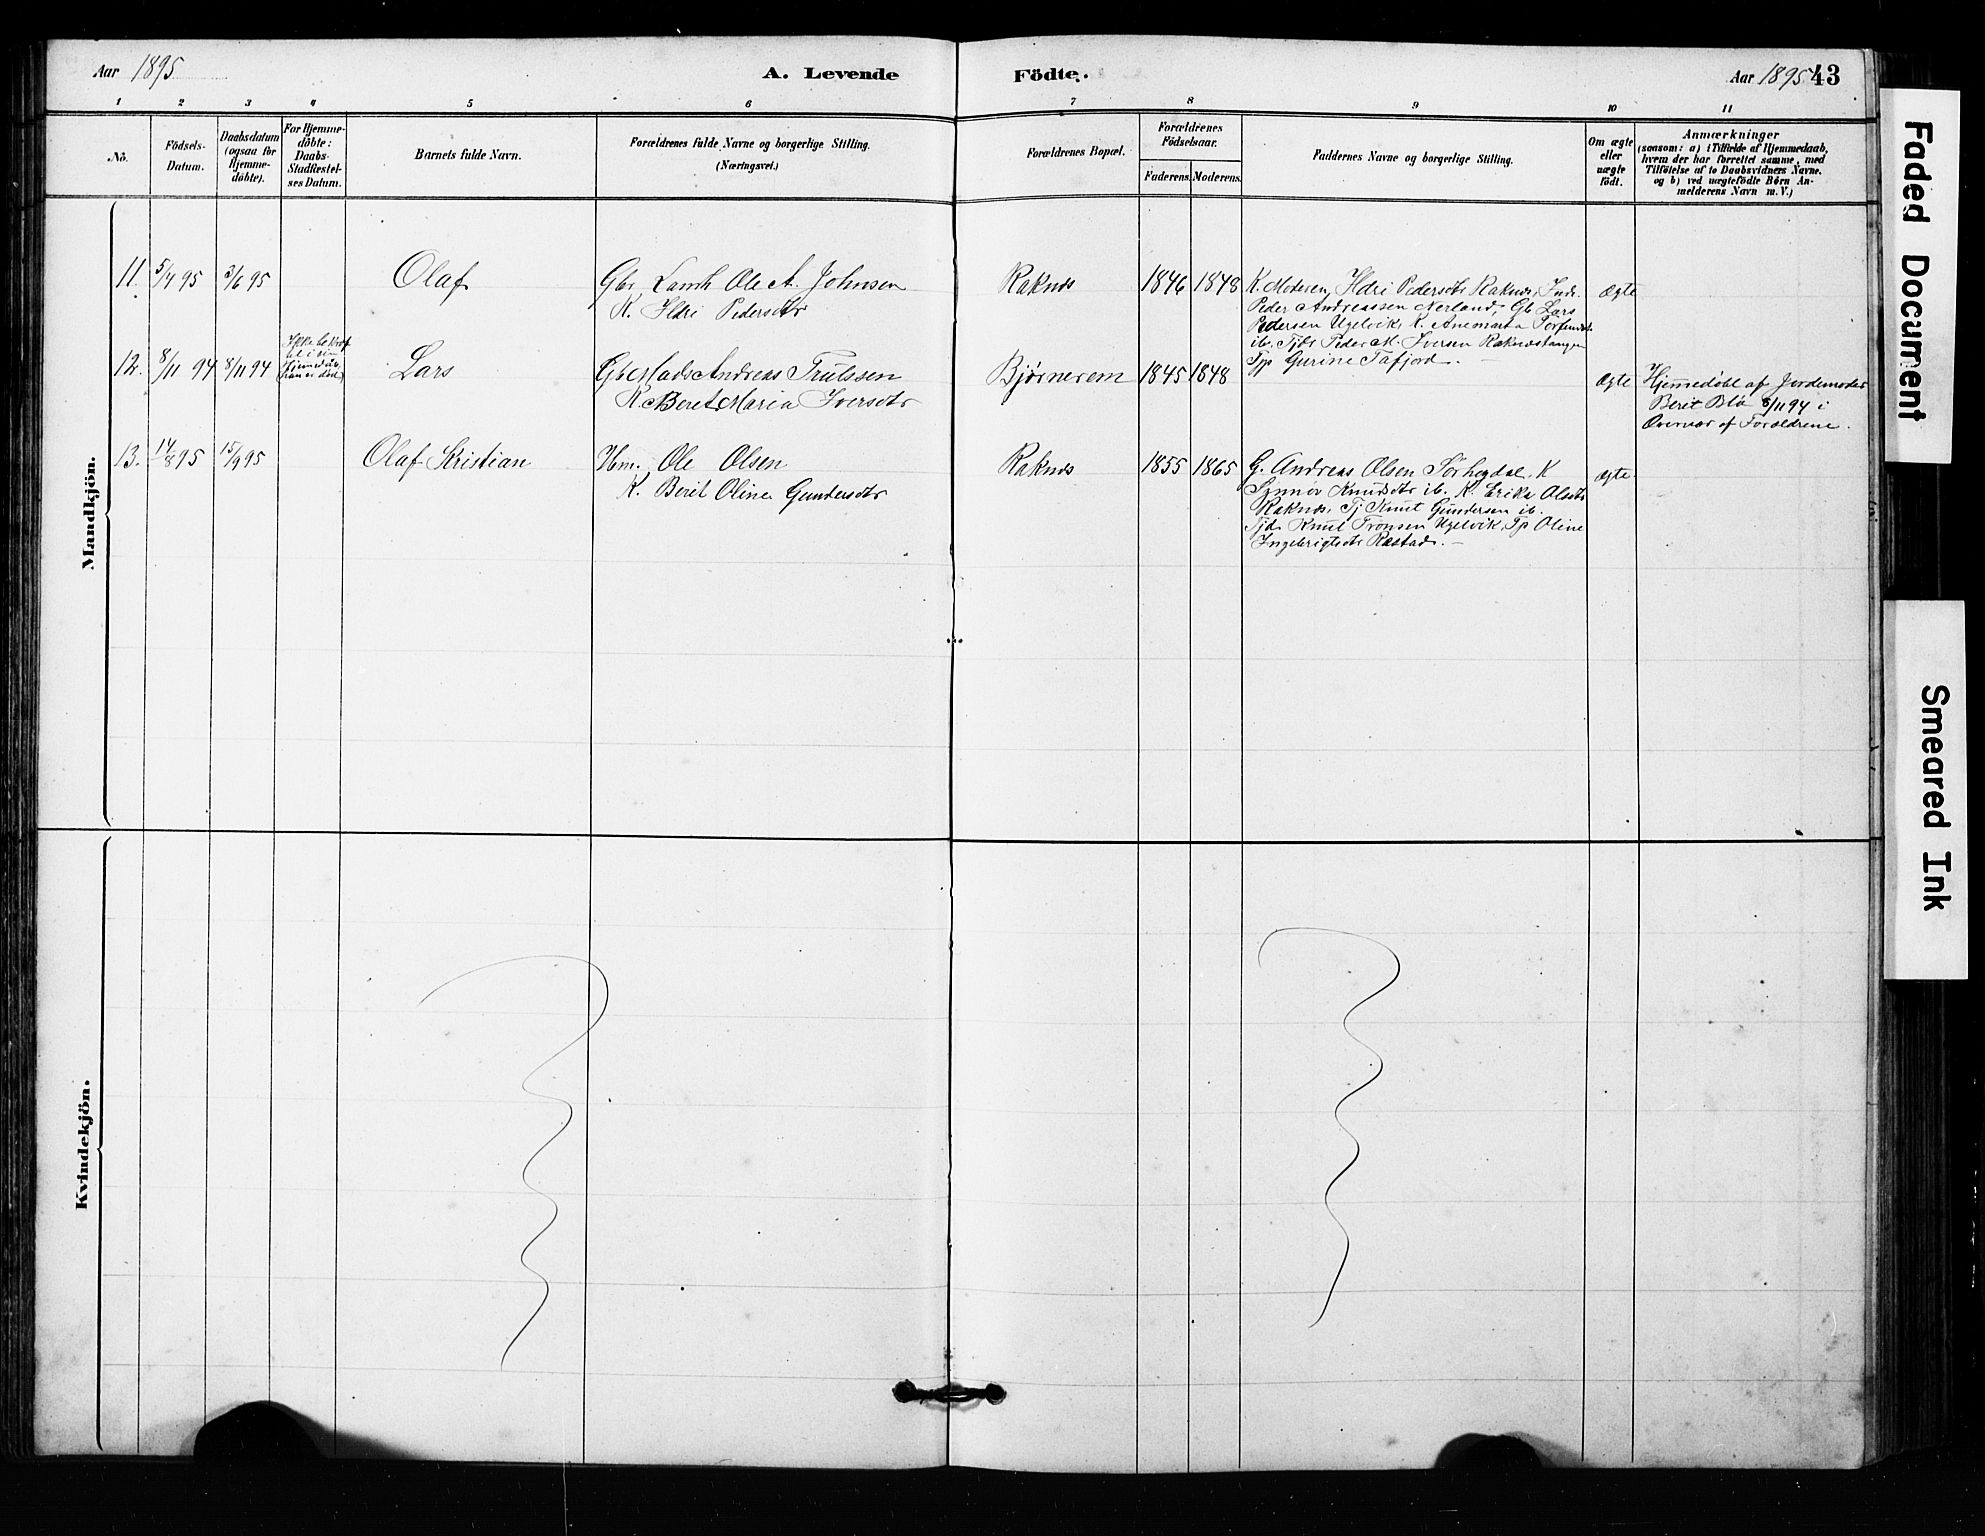 Aar 1895
A. Levende
Födte.
Aar 1895
43
1 2 3 4 5 6 7 8 9 10 11
No.
Födsels-
Datum.
Daabsdatum
(ogsaa for
Hjemme-
döbte).
For Hjemme-
döbte:
Daabs-
Stadfæstel-
ses Datum.
Barnets fulde Navn.
Forældrenes fulde Navne og borgerlige Stilling.
(Næringsvei.)
Forældrenes Bopæl.
Forældrenes
Födselsaar.
Faderens. Moderens.
Faddernes Navne og borgerlige Stilling.
Om ægte
eller
uægte
födt.
Anmærkninger
(saasom: a) i Tilfælde af Hjemmedaab,
hvem der har forrettet samme, med
Tilföielse af to Daabsvidners Navne.
og b) ved uægtefödte Börn An-
melderens Navn m. V.)
Mandkjön.
11. 5/4 95 3/6 95 Olaf
Gbr Ole A. Johnsen
K. Ildri Pedersdtr
Raknes 1846 1848
K. Moderen, Ildri Pedersdtr Raknes,
Peder Andreassen Nerland, Gb Lars
Pedersen Ugelvik, K. Anemarta
ib. Tjd Peder M. Iversen Raknestangen
Tjp Gurine Tafjord.
ægte
12. 8/11 94 8/11 94
Ikke
Lars
Gb Mads Andreas Trulssen
K. Beret Maria Iversdtr
Bjørnerem 1845 1848
ægte
Hjemmedøbt af Jordemoder
Berit Blø 8/11 94 i
Overvær af Forældrene.
13. 14/8 95 15/9 95 Olaf Kristian
Hm. Ole Olsen
K. Berit Oline Gundersdtr
Raknes 1855 1865
G. Andreas Olsen Sørhegdal K
Synnøv Knudsdtr ib. K. Erika Olsdtr
Raknes, Tj Knut Gundersen ib.
Tjd Knut Tronsen Ugelvik, Tp Oline
Ingebrigtsdtr Røstad.
ægte
Kvindekjön.
Faded Document
Smeared Ink